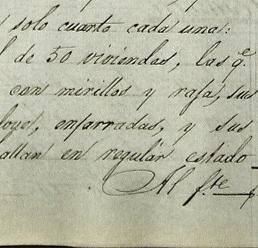 solo cuarto cada una:
de 50 viviendas, las q.e
con mirillas y rafa, sus
enfarradas, y sus
allan en regular estado
Al f.te